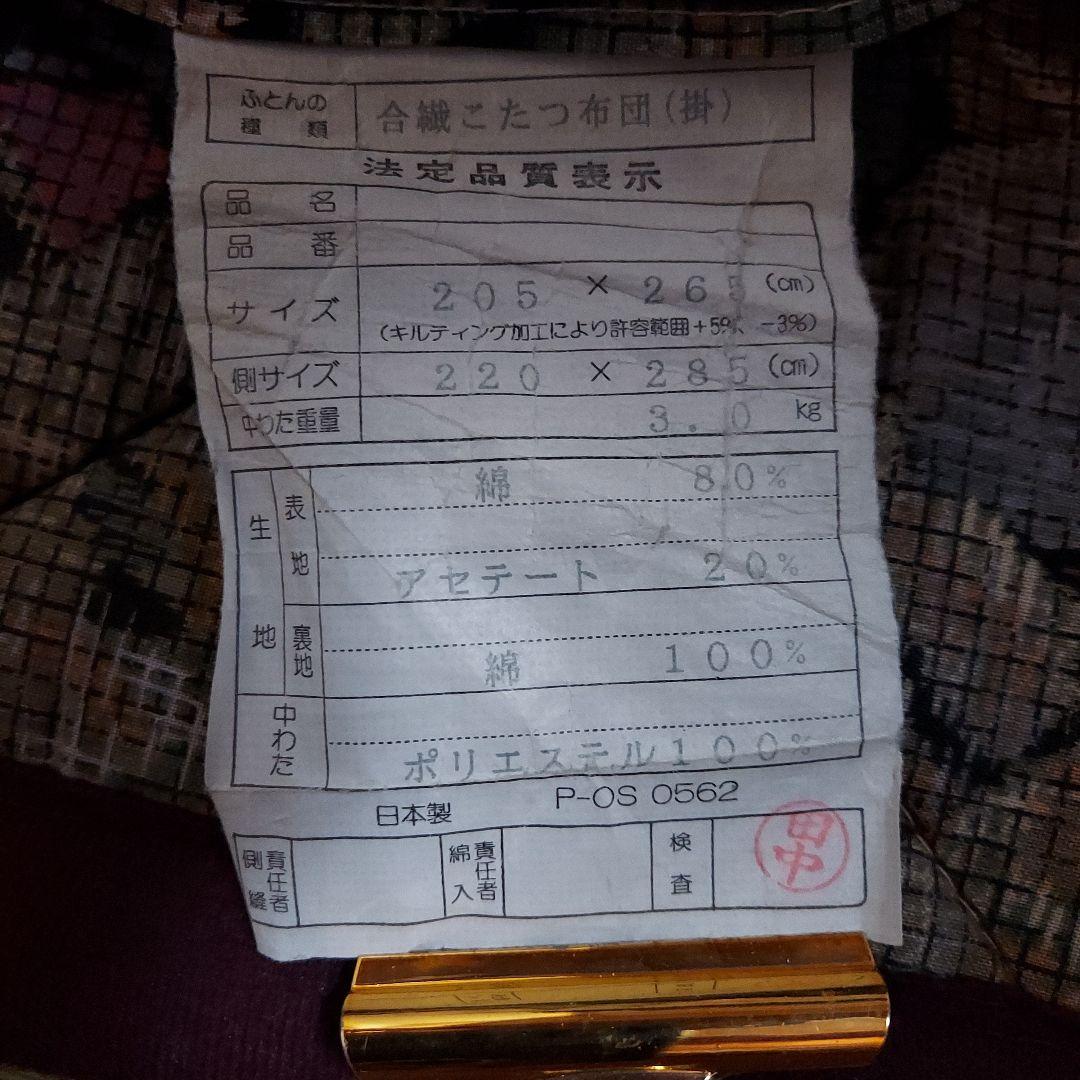 ふとんの
種類
合繊こたつ布団(掛)
法定品質表示
品名
品番
サイズ
205 × 265 (cm)
(キルティング加工により許容範囲+5%、-3%)
側サイズ 220 × 285 (cm)
中わた重量 3.0 kg
生地
表地
綿 80%
アセテート 20%
裏地
綿 100%
中わた
ポリエステル100%
日本製 P-OS 0562
側縫責任者
綿入責任者
検査
田中